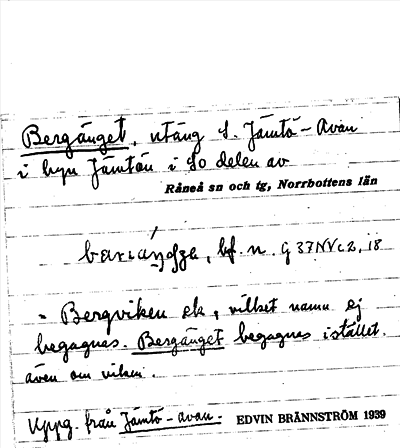 Bergänget, utäng S. Jämtö-Avan
i byn Jämtön i So delen av
Råneå sn och tg, Norrbottens län
bf. n. G 37NVc2, i8
= Bergviken ek, vilket namn ej
begagnas. Bergänget begagnas istället.
även om viken.
Uppg. från Jämtö-avan.
EDVIN BRÄNNSTRÖM 1939